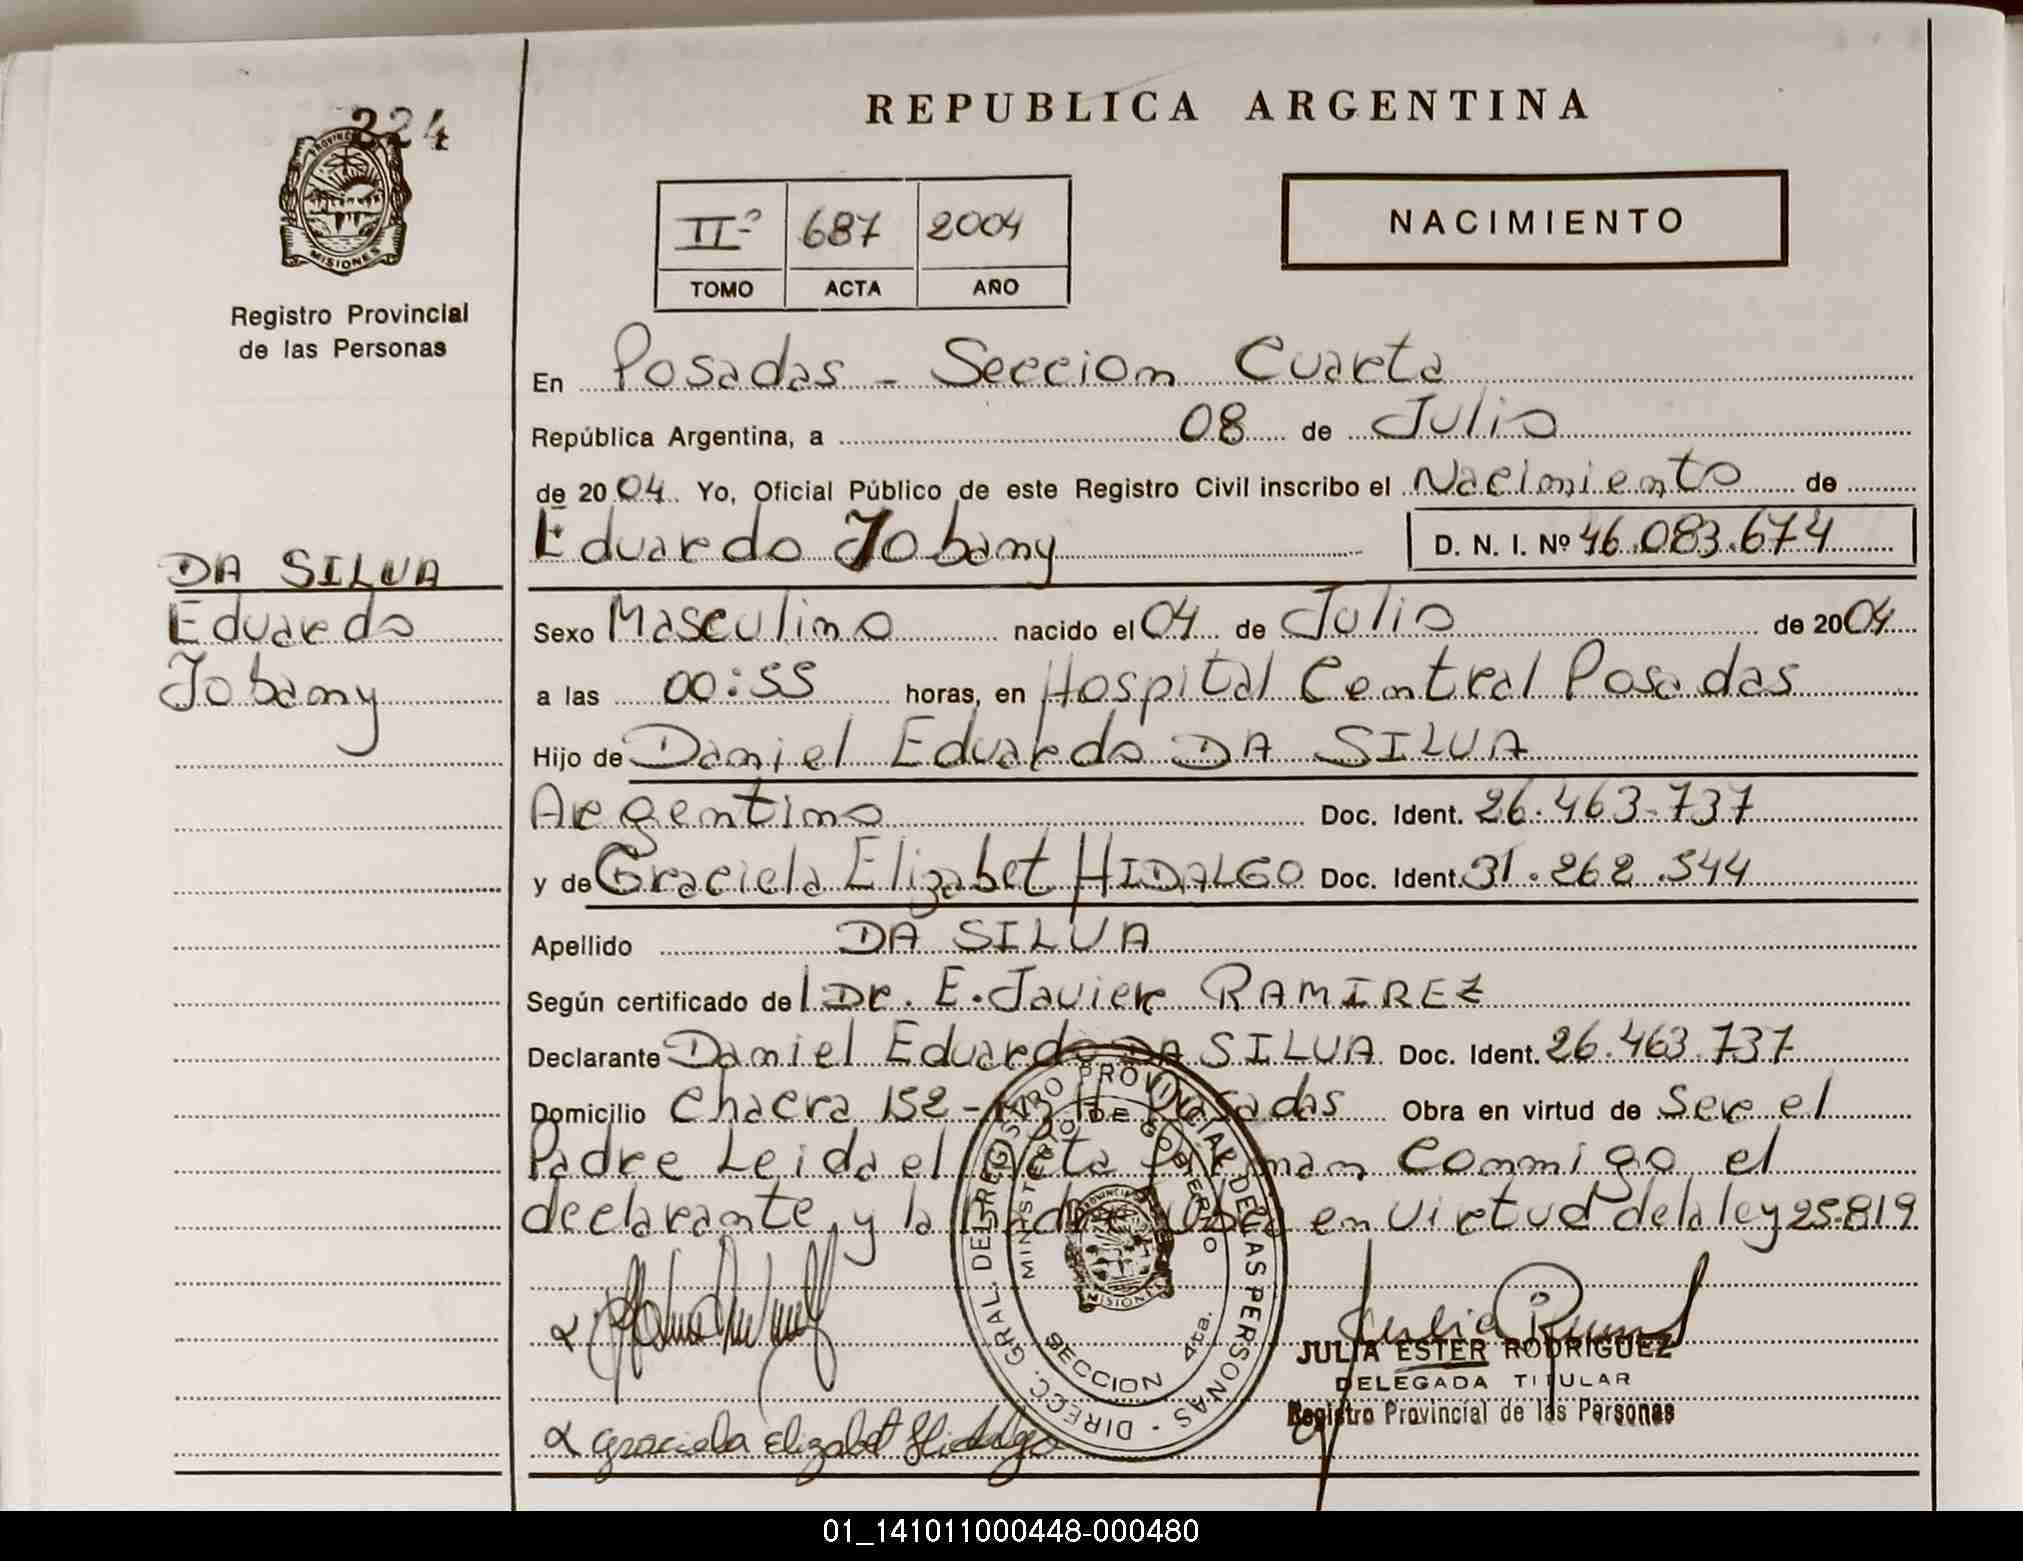 224
PROVINCIA
MISIONES
Registro Provincial
de las Personas
REPUBLICA ARGENTINA
IIº 687 2004
TOMO ACTA AÑO
NACIMIENTO
En Posadas - Seccion Cuarta
República Argentina, a 08 de Julio
de 2004 Yo, Oficial Público de este Registro Civil inscribo el Nacimiento de
Eduardo Jobany D. N. I. Nº 46.083.674
DA SILVA
Eduardo
Jobany
Sexo Masculino nacido el 04 de Julio de 2004
a las 00:55 horas, en Hospital Central Posadas
Hijo de Daniel Eduardo DA SILVA
Argentino Doc. Ident. 26.463.737
y de Graciela Elizabet HIDALGO Doc. Ident. 31.262.544
Apellido DA SILVA
Según certificado del Dr. E. Javier RAMIREZ
Declarante Daniel Eduardo DA SILVA Doc. Ident. 26.463.737
Domicilio Chacra 152 - Posadas Obra en virtud de Ser el
Padre Leida el Acta Firman Conmigo el
declarante, y la Madre Obra en virtud de la ley 25.819
DIRECC. GRAL. DEL REGISTRO PROVINCIAL DE LAS PERSONAS
MINISTERIO DE GOBIERNO
PROVINCIA
MISIONES
SECCION 4ta.
Graciela Elizabet Hidalgo
JULIA ESTER RODRIGUEZ
DELEGADA TITULAR
Registro Provincial de las Personas
01_141011000448-000480